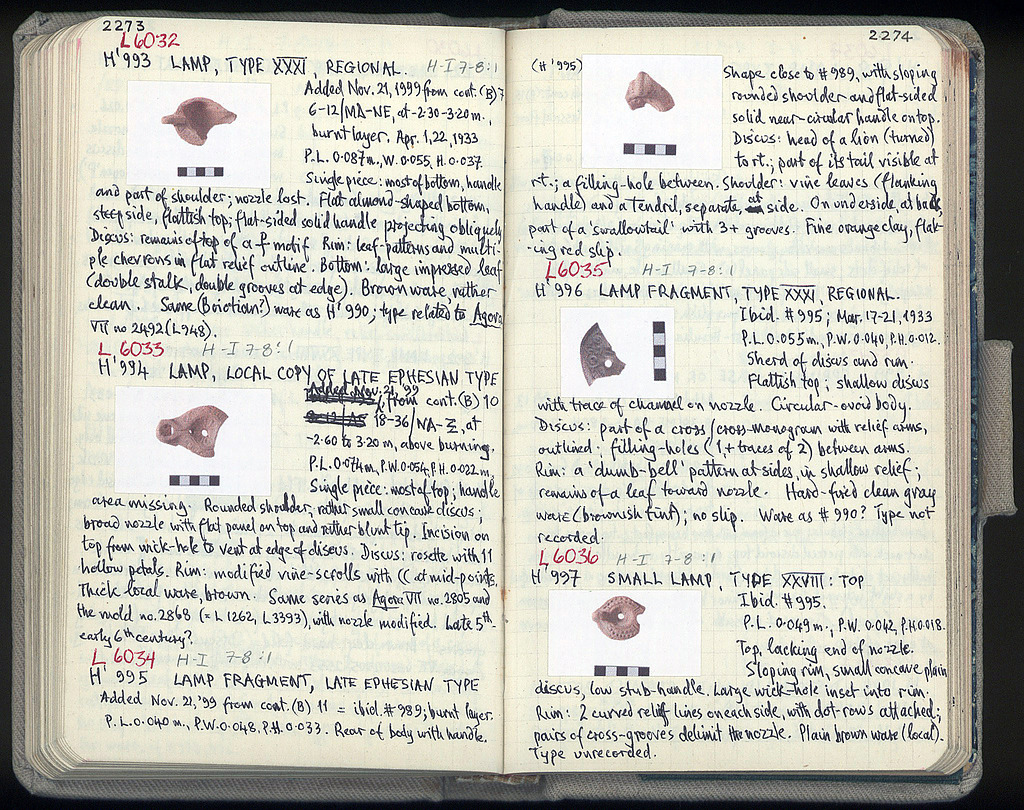 2273
L 6032
Hʹ993 LAMP, TYPE XXXI, REGIONAL. H-I 7-8:1
Added Nov. 21, 1999 from cont. (B) 7
6-12/MA-NE, at -2.30-3.20m.,
burnt layer. Apr. 1, 22, 1933
P.L. 0.087m., W. 0.055, H. 0.037
Single piece: most of bottom, handle
and part of shoulder; nozzle lost. Flat almond-shaped bottom,
steep side, flattish top; flat-sided solid handle projecting obliquely
Discus: remains of top of a motif Rim: leaf-patterns and multi-
ple chevrons in flat relief outline. Bottom: large impressed leaf
(double stalk, double grooves at edge). Brown ware, rather
clean Same (Boiotian?) ware as Hʹ990; type related to Agora
VII no 2492 (L 948).
L 6033 H-I 7-8:1
Hʹ994 LAMP, LOCAL COPY OF LATE EPHESIAN TYPE
Added Nov. 21, 99
from cont. (B) 10
18-36/NA-Ξ, at
-2.60 to 3.20m, above burning.
P.L. 0.074m, P.W. 0.054, P.H. 0.022m,
Single piece: most of top; handle
area missing. Rounded shoulder, rather small concave discus;
broad nozzle with flat panel on top and rather blunt tip. Incision on
top from wick-hole to vent at edge of discus. Discus: rosette with 11
hollow petals. Rim: modified vine-scrolls with (( at mid-points.
Thick local ware, brown. Same series as Agora VII no. 2805 and
the mold no. 2868 (= L 1262, L 3393), with nozzle modified. Late 5th-
early 6th century?
L 6034 H-I 7-8:1
Hʹ 995 LAMP FRAGMENT, LATE EPHESIAN TYPE
Added Nov. 21, '99 from cont. (B) 11 = ibid. #989; burnt layer.
P.L. 0.040m, P.W. 0.048, P.H. 0.033. Rear of body with handle.
2274
(Hʹ995)
shape close to #989, with sloping
rounded shoulder and flat-sided
solid near-circular handle on top.
Discus: head of a lion (turned)
to rt.; part of its tail visible at
rt.; a filling-hole between. Shoulder: vine leaves (flanking
handle) and a tendril, separate, at side. On underside, at back,
part of a 'swallowtail' with 3+ grooves. Fine orange clay, flak-
ing red slip.
L 6035 H-I 7-8:1
Hʹ996 LAMP FRAGMENT, TYPE XXXI, REGIONAL.
Ibid. #995; Mar. 17-21, 1933
P.L. 0.055m., P.W. 0.040, P.H. 0.012.
Sherd of discus and rim.
Flattish top; shallow discus
with trace of channel on nozzle. Circular-ovoid body.
Discus: part of a cross/cross-monogram with relief arms,
outlined; filling-holes (1+traces of 2) between arms.
Rim: a 'dumb-bell' pattern at sides, in shallow relief;
remains of a leaf toward nozzle. Hard-fired clean gray
ware (brownish tint); no slip. Ware as #990? Type not
recorded.
L 6036 H-I 7-8:1
Hʹ997 SMALL LAMP, TYPE XXVIII: TOP
Ibid. #995.
P.L. 0.049m., P.W. 0.042, P.H. 0.018.
Top, lacking end of nozzle.
Sloping rim, small concave plain
discus, low stub-handle. Large wick-hole inset into rim.
Rim: 2 curved relief lines on each side, with dot-rows attached;
pairs of cross-grooves delimit the nozzle. Plain brown ware (local).
Type unrecorded.